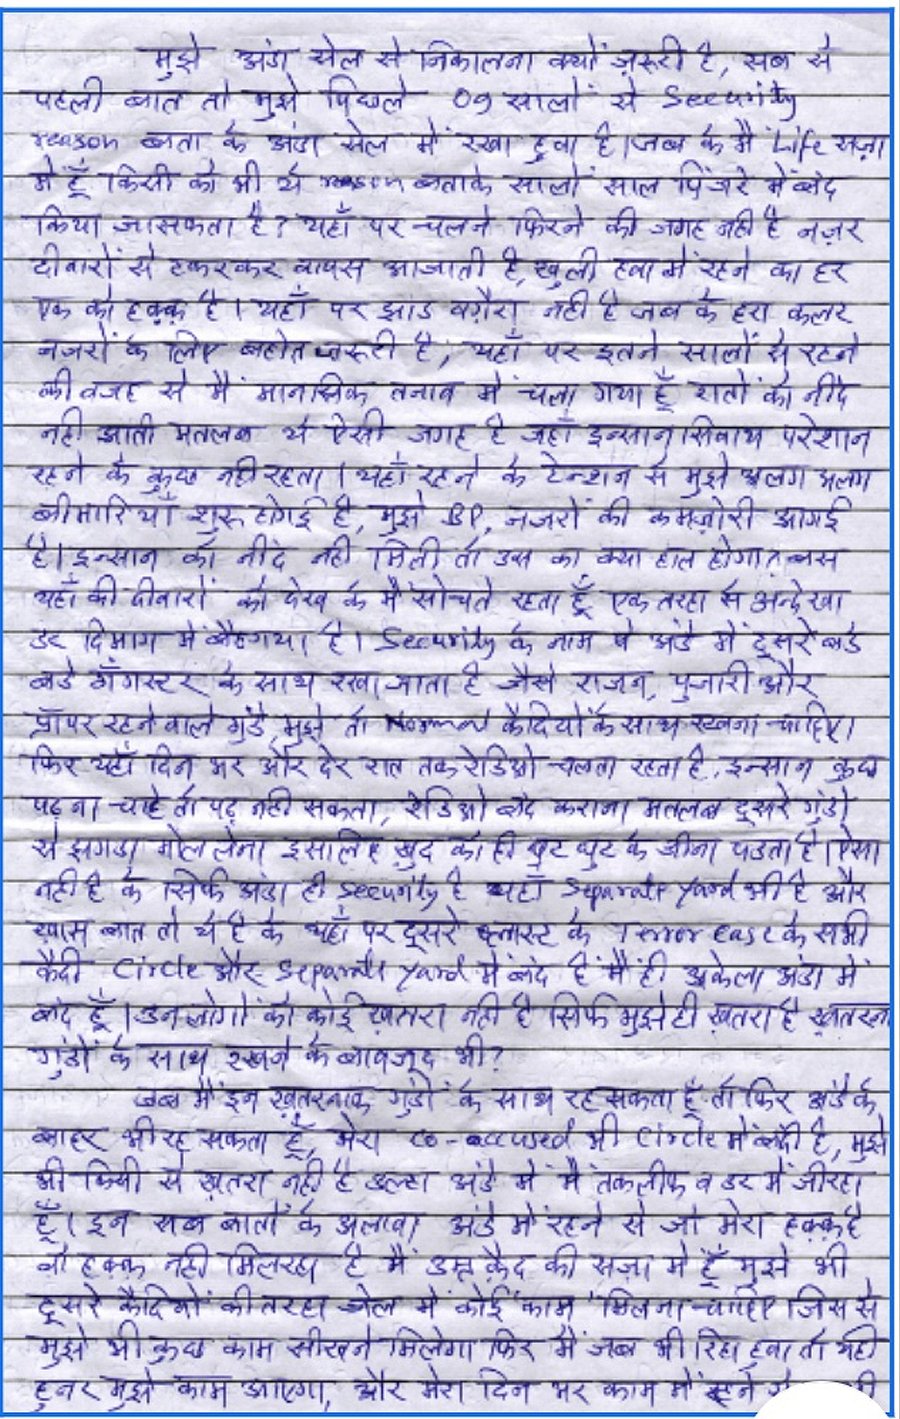 मुझे अंडा सेल से निकालना क्यों ज़रूरी है, सब से
पहली बात तो मुझे पिछले 09 सालों से Security
reason बता के अंडा सेल में रखा हुवा है। जब के मैं Life सज़ा
में हूँ किसी को भी ये reason बताके सालों साल पिंजरे में बंद
किया जासकता है? यहाँ पर चलने फिरने की जगह नही है नज़र
दीवारों से टकराकर वापस आजाती है, खुली हवा में रहने का हर
एक को हक़्क़ है। यहाँ पर झाड वग़ैरा नही है जब के हरा कलर
नजरों के लिए बहोत जरूरी है, यहाँ पर इतने सालों से रहने
की वजह से मैं मानसिक तनाव में चला गया हूँ रातों को नींद
नही आती मतलब ये ऐसी जगह है जहाँ इन्सान सिवाय परेशान
रहने के कुछ नही रहता। यहाँ रहने के टेन्शन से मुझे अलग अलग
बीमारियाँ शुरू होगई है, मुझे BP, नजरों की कमज़ोरी आगई
है। इन्सान को नींद नही मिली तो उस का क्या हाल होगा? बस
यहाँ की दीवारों को देख के मैं सोचते रहता हूँ एक तरहा से अन्देखा
डर दिमाग में बैठ गया है। Security के नाम पे अंडे में दूसरे बडे
बडे गँगस्टर के साथ रखा जाता है जैसे राजन, पुजारी और
प्रॉपर रहने वाले गुंडे, मुझे तो Normal कैदियों के साथ रखना चाहिए।
फिर यहाँ दिन भर और देर रात तक रेडिओ चलता रहता है, इन्सान कुछ
पढ़ना चाहे तो पढ़ नही सकता, रेडिओ बंद कराना मतलब दूसरे गुंडों
से झगडा मोल लेना इसलिए खुद को ही घुट घुट के जीना पडता है। ऐसा
नही है के सिर्फ अंडा ही Security है यहाँ Separate yard भी है और
खास बात तो ये है के यहाँ पर दूसरे ब्लास्ट के Terror case के सभी
कैदी Circle और Separate yard में बंद हैं मैं ही अकेला अंडा में
बंद हूँ। उन लोगों को कोई ख़तरा नही है सिर्फ मुझे ही ख़तरा है
गुंडों के साथ रखने के बावजूद भी?
जब मैं इन ख़तरनाक गुंडों के साथ रह सकता हूँ तो फिर अंडे के
बाहर भी रह सकता हूँ, मेरा co-accused भी Circle में बंदी है, मुझे
भी किसी से ख़तरा नही है उल्टा अंडे में मैं तकलीफ व डर में जीरहा
हूँ। इन सब बातों के अलावा अंडे में रहने से जो मेरा हक़्क़ है
वो हक़्क़ नही मिलरहा है मैं उम्र क़ैद की सज़ा में हूँ मुझे भी
दूसरे कैदियों की तरहा जेल में कोई काम मिलना चाहिए जिस से
मुझे भी कुछ काम सीखने मिलेगा फिर मैं जब भी रिहा हुवा तो यही
हुनर मुझे काम आएगा, और मेरा दिन भर काम में रहने